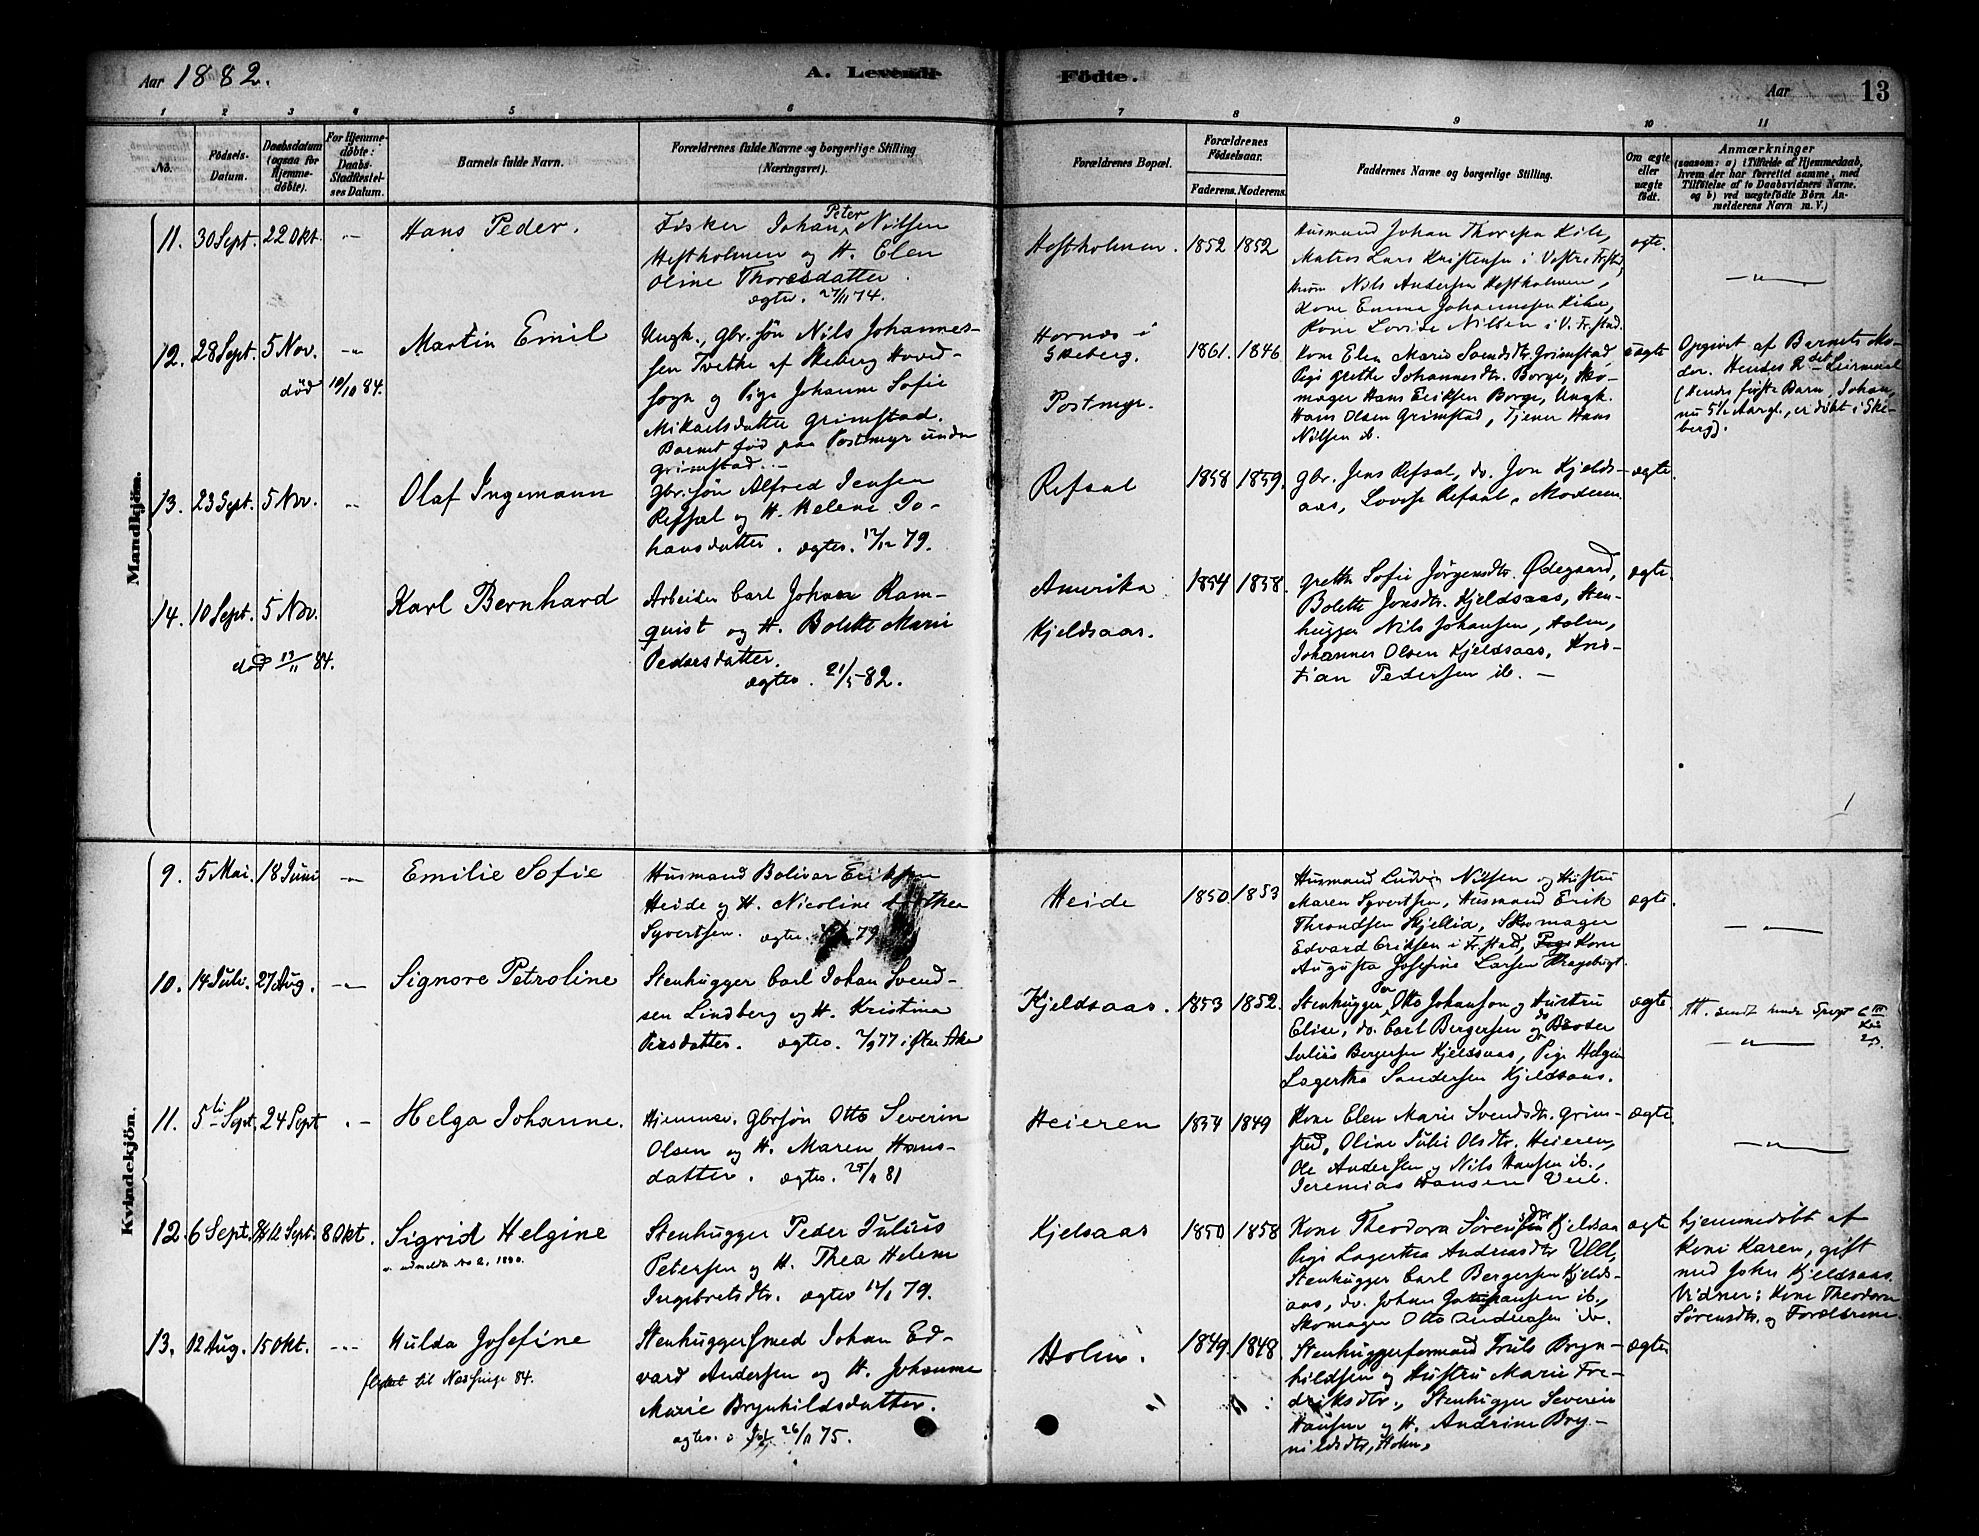 Aar 1882.
A. Levende
Födte.
Aar
13
1
2
3
4
5
6
7
8
9
10
11
No.
Födsels-
Datum.
Daabsdatum
(ogsaa for
Hjemme-
döbte).
For Hjemme-
döbte:
Daabs-
Stadfæstel-
ses Datum.
Barnets fulde Navn.
Forældrenes fulde Navne og borgerlige Stilling
(Næringsvei).
Forældrenes Bopæl.
Forældrenes
Födselsaar.
Faderens.
Moderens.
Faddernes Navne og borgerlige Stilling.
Om ægte
eller
uægte
födt.
Anmærkninger
(saasom: a) i Tilfælde af Hjemmedaab,
hvem der har forrettet samme, med
Tilföielse af to Daabsvidners Navne.
og b) ved uægtefödte Börn An-
melderens Navn m. V.)
Mandkjön.
11. 30 Sept. 22 Okt. -"-
Hans Peder.
Fisker Johan Peter Nilsen
Heftholmen og H. Elen
Oline Thoresdatter.
ægtev. 27/11 74.
Heftholmen. 1852 1852
Husmand Johan Thoresen Kile,
Matros Lars Kristensen i Vestre Fr.stad,
Husm Nils Andersen Heftholmen,
Kone Emma Johannesen Kile,
Kone Lovise Nilsen i V. Fr.stad.
ægte.
-"-
12. 28 Sept. 5 Nov. -"-
død 10/10 84.
Martin Emil
Ungk., Gbr.søn Nils Johannes-
sen Tvethe af Skeberg Hoved-
sogn og Pige Johanne Sofie
Mikaelsdatter Grimstad.
Barnet fød paa Postmyr under
Grimstad. -
Hornæs i
Skeberg.
Postmyr.
1861. 1846
Kone Elen Marie Svendsdtr. Grimstad,
Pige Grethe Johannesdtr. Borge, Sko-
mager Hans Eriksen Borge, Ungk.
Hans Olsen Grimstad, Tjener Hans
Nilsen ib.
uægte
Opgivet af Barnets Mo-
der. Hendes 2det Leiermaal
(Hendes første Barn, Johan,
nu 5½ Aarg., er døbt i Ske-
berg).
13. 23 Sept. 5 Nov. -"-
Olaf Ingemann
Gbr.søn Alfred Jensen
Refsal og H. Helene Jo-
hansdatter. ægtev. 17/12 79.
Refsal 1858 1859.
Gbr. Jens Refsal, do. Jon Kjelds-
aas, Lovise Refsal, Moderen
ægte.
14. 10 Sept. 5 Nov.
død 13/11 84.
Karl Bernhard
Arbeider Carl Johan Ram-
quist og H. Bolette Marie
Pedersdatter.
ægtev. 21/5 82.
Amerika
Kjeldsaas.
1854 1858.
Grethe Sofie Jørgensdtr. Ødegaard,
Bolette Jonsdtr. Kjeldsaas, Sten-
hugger Nils Johansen, Holm,
Johannes Olsen Kjeldsaas, Kris-
tian Pedersen ib. -
ægte.
Kvindekjön.
9. 5 Mai. 18 Juni -"-
Emilie Sofie
Husmand Bolivar Eriksen
Heide og H. Nicoline
Syvertsen. ægtev. 79
Heide 1850 1853
Husmand Ludvig Nilsen og Hustru
Maren Syvertsen, Husmand Erik
Throndsen Skjellid, Skomager
Edvard Eriksen i Fr.stad, Pige Kone
Augusta Josefine Larsen
ægte.
-"-
10. 14 Juli. 27 Aug. -"-
Signore Petroline
Stenhugger Carl Johan Svend-
sen Lindberg og H. Kristina
Persdatter. ægtev. 77 i Østre Aker
Kjeldsaas. 1853 1852.
Stenhugger Otto Johanson og Hustru
Elise, do. Carl Bergersen og Broder
Julius Bergersen Kjeldsaas, Pige Helga
Lagertha Sandersen Kjeldsaas.
ægte.
-"-
11. 5te Sept. 24 Sept -"-
Helga Johanne.
Hjemmev. Gbrsøn Otto Severin
Olsen og H. Maren Hans-
datter. ægtev. 25/11 81
Heieren 1854 1849
Kone Elen Marie Svendsdtr. Grim-
stad, Oline Julie Olsdtr. Heieren,
Ole Andersen og Nils Hansen ib.,
Jeremias Hansen Veel.
ægte.
-"-
12. 6 Sept. Sept. 8 Okt.
Sigrid Helgine
udmeldt No 2, 1890.
Stenhugger Peder Julius
Petersen og H. Thea Helene
Ingebretsdtr. ægtev 79.
Kjelsaas 1850 1858
Kone Theodora Sørensdtr Kjeldsaas
Pige Lagertha Andreasdtr Ulll,
Stenhugger Carl Bergersen Kjelds-
aas, do. Johan Johansen ib.,
Skomager Otto Andreasen do.
ægte
Hjemmedøbt af
Kone Karen, gift
med John Kjeldsaas.
Vidner: Kone Theodora
Sørensdtr. og Forældrene
13. 12 Aug. 15 Okt. -"-
Hulda Josefine
flyttet til Næsinge 84.
Stenhuggersmed Johan Ed-
vard Andersen og H. Johanne
Marie Brynhildsdatter.
ægtev. 26/11 75.
Holm. 1849. 1848.
Stenhuggerformand Truls Bryn-
hildsen og Hustru Marie Fre-
driksdtr., Stenhugger Severin
Hansen og H. Andrine Bry-
nildsdtr, Holm.
ægte